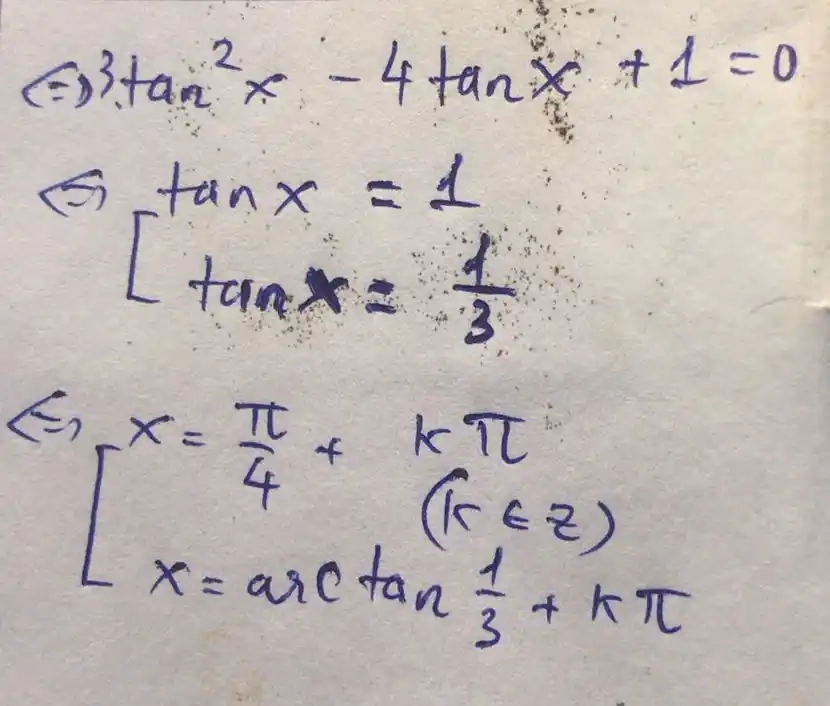 ⇔ 3tan²x - 4tanx + 1 = 0
⇔ [ tanx = 1
tanx = 1/3
⇔ [ x = π/4 + kπ
(k ∈ Z)
x = arctan 1/3 + kπ